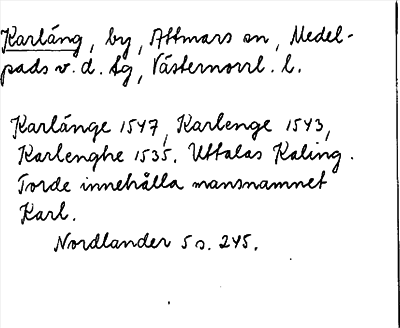 Karläng, by, Attmars sn, Medel-
pads v. d. tg, Västernorrl. l.
Karlänge 1547, Karlenge 1543,
Karlenghe 1535. Uttalas Kaling.
Torde innehålla mansnamnet
Karl.
Nordlander 5 s. 245.